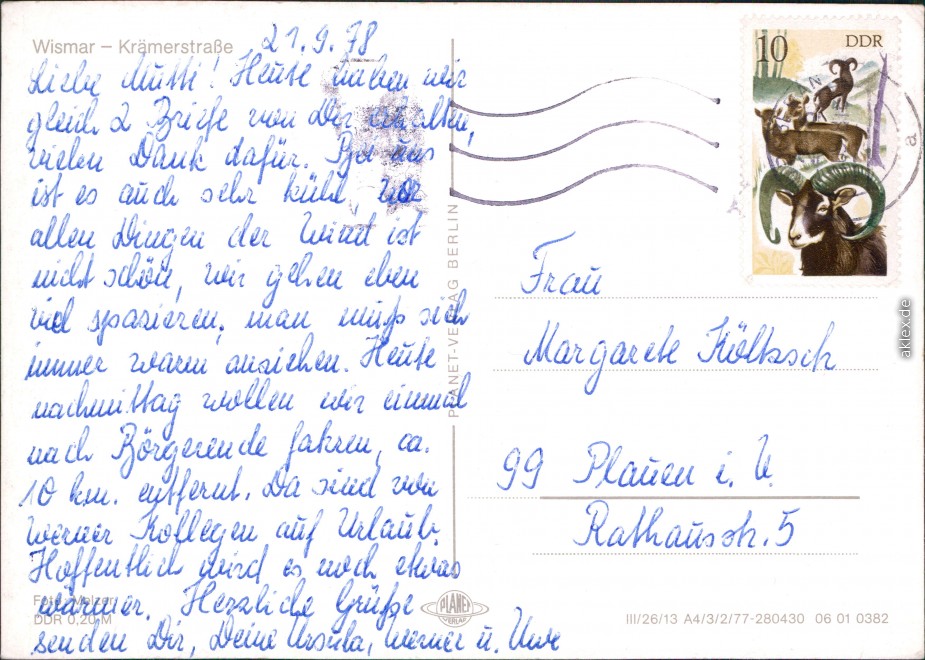 Wismar – Krämerstraße
21.9.78
Liebe Mutti! Heute haben wir
gleich 2 Briefe von Dir erhalten,
vielen Dank dafür. Bei uns
ist es auch sehr kühl, vor
allen Dingen der Wind ist
nicht schön, wir gehen eben
viel spazieren, man muß sich
immer warm anziehen. Heute
nachmittag wollen wir einmal
nach Börgerende fahren, ca.
10 km. entfernt. Da sind von
Werner Kollegen auf Urlaub.
Hoffentlich wird es noch etwas
wärmer. Herzliche Grüße
senden Dir, Deine Ursula, Werner u. Uwe
Foto: Melzer
DDR 0,20 M
PLANET-VERLAG BERLIN
PLANET
VERLAG
10 DDR
a
Frau
Margarete Költzsch
99 Plauen i. V.
Rathausstr. 5
III/26/13 A4/3/2/77-280430 06 01 0382
aklex.de